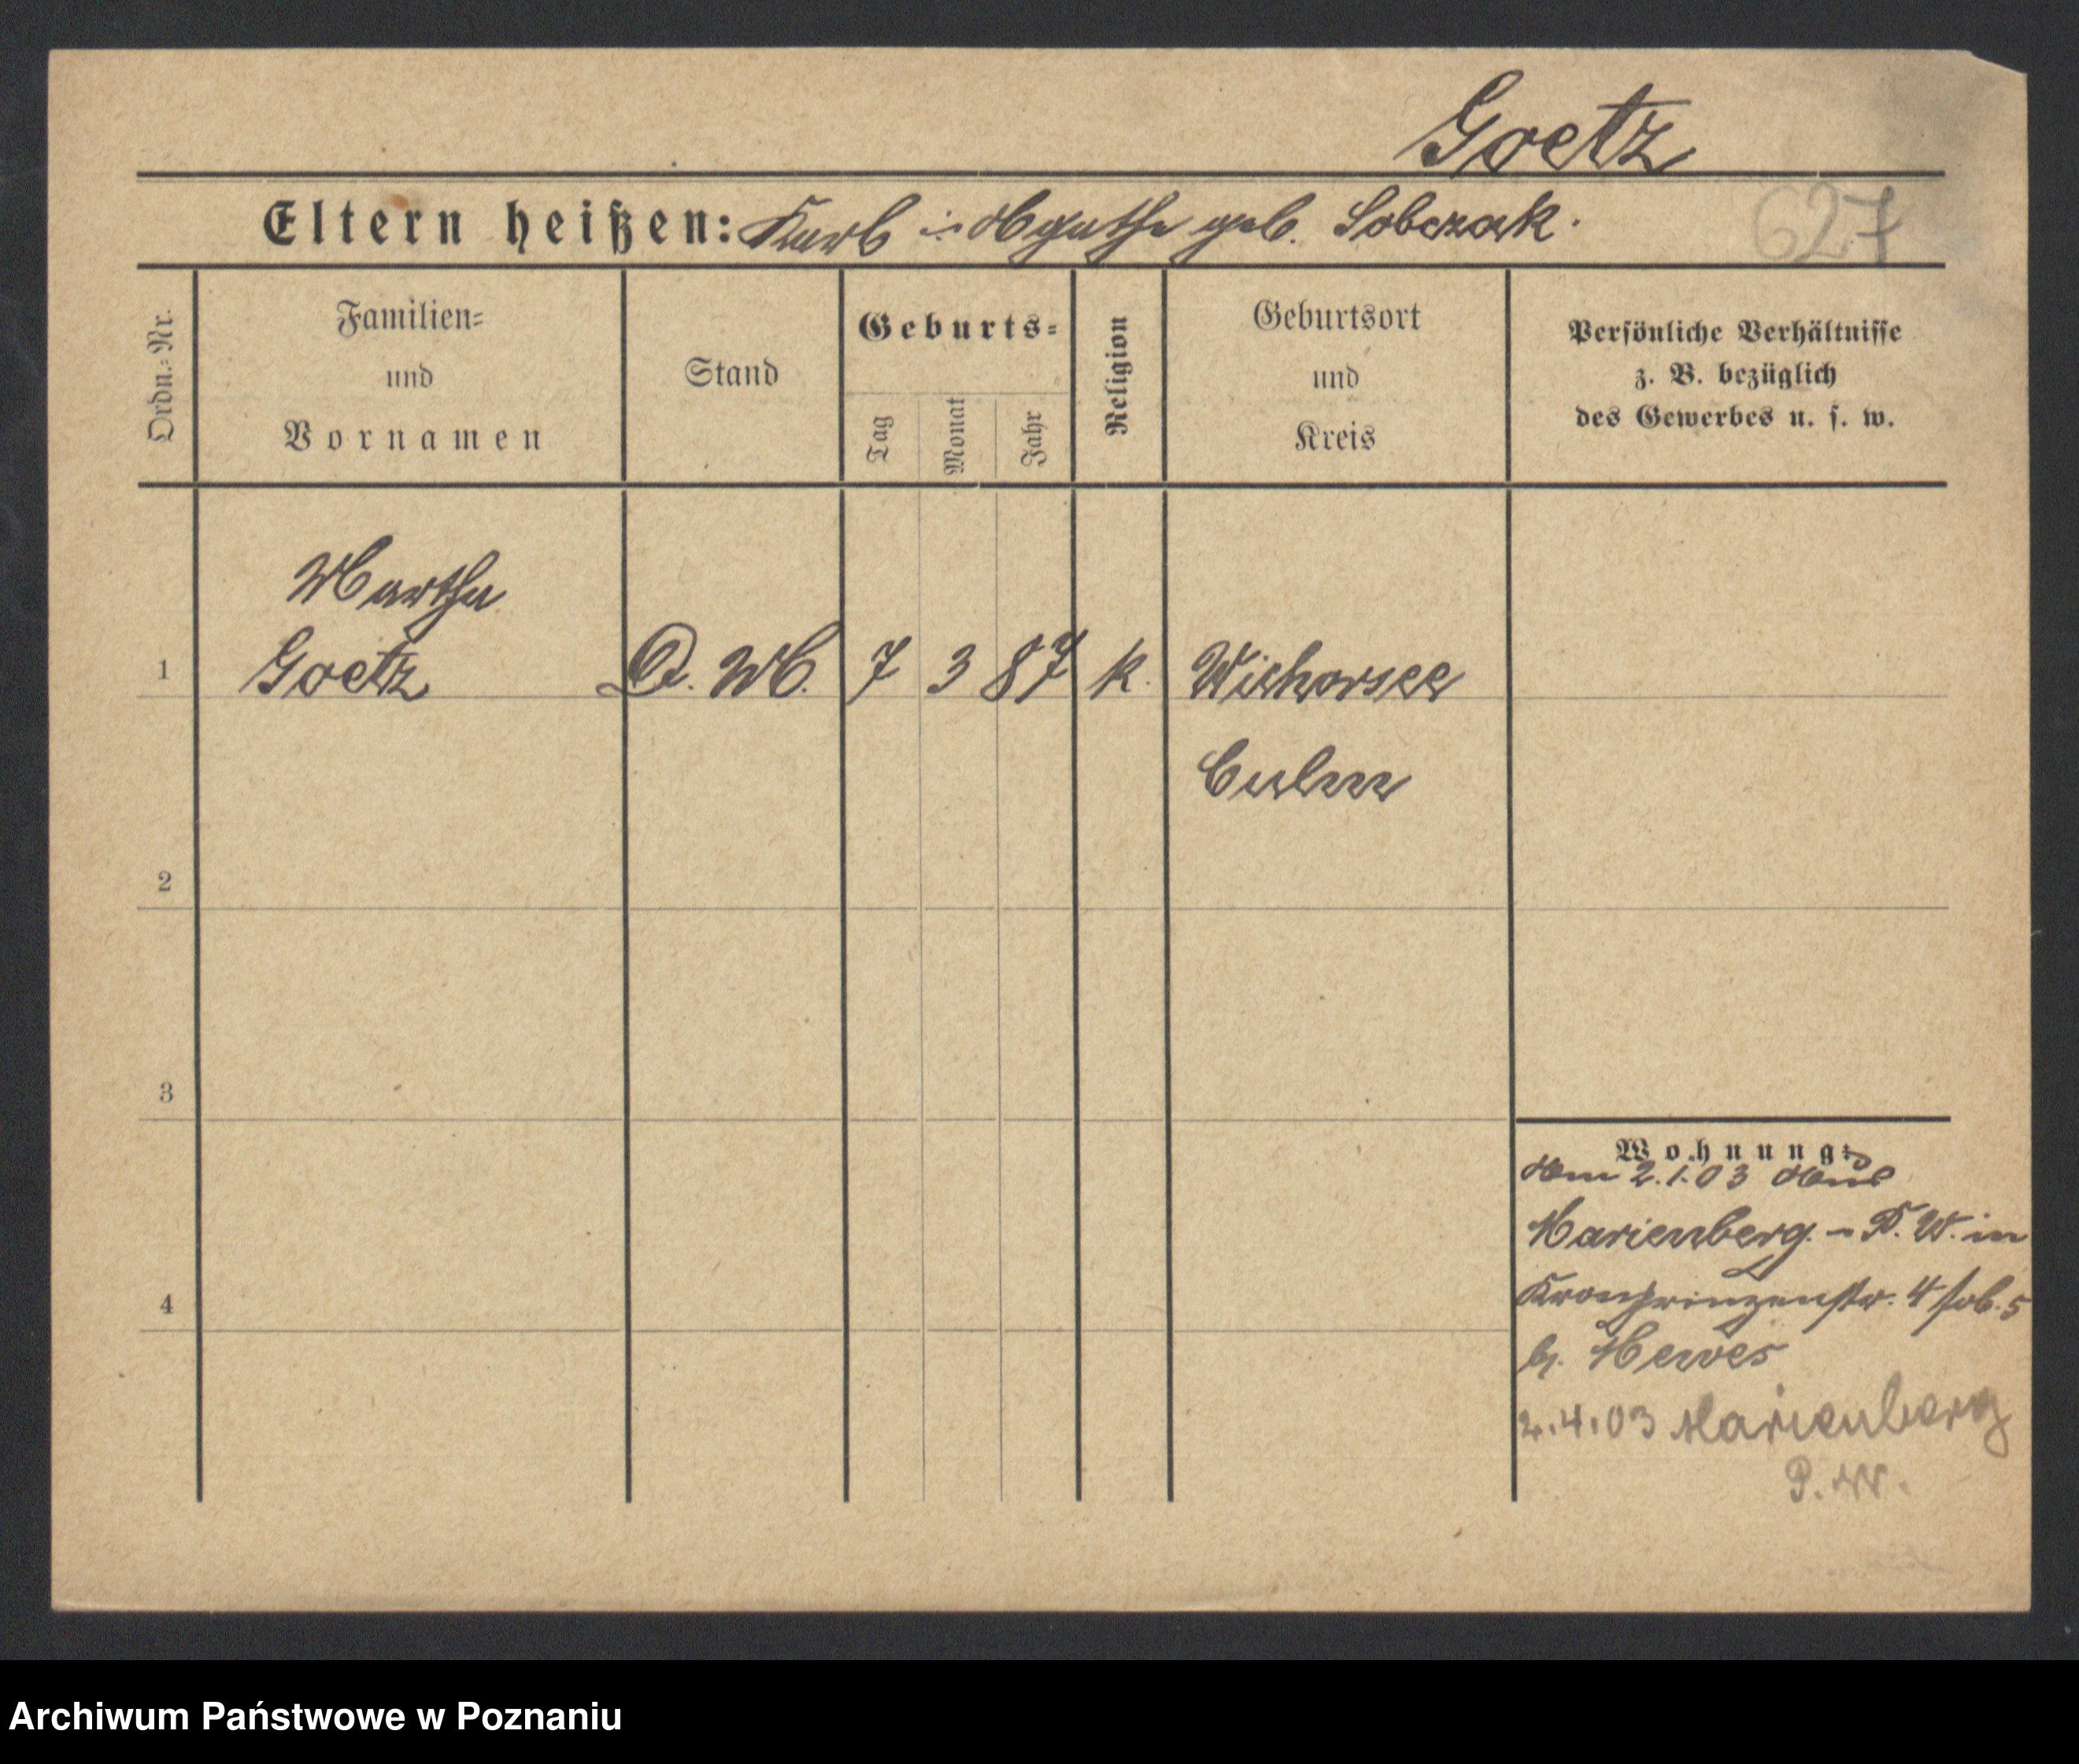 Goetz
Eltern heißen: Karl u. Agathe geb. Sobczak.
627
Ordn.-Nr.
Familien-
und
Vornamen
Stand
Geburts-
Tag
Monat
Jahr
Religion
Geburtsort
und
Kreis
Persönliche Verhältnisse
z. B. bezüglich
des Gewerbes u. s. w.
Martha
1 Goetz D. M. 7 3 87 k. Wichorsee
Culm
2
3
Wohnung:
Am 2.1.03 Aus
Marienberg. - P. W. in
4 Kronprinzenstr. 4
b. Mewes
2.4.03 Marienberg
P. W.
Archiwum Państwowe w Poznaniu